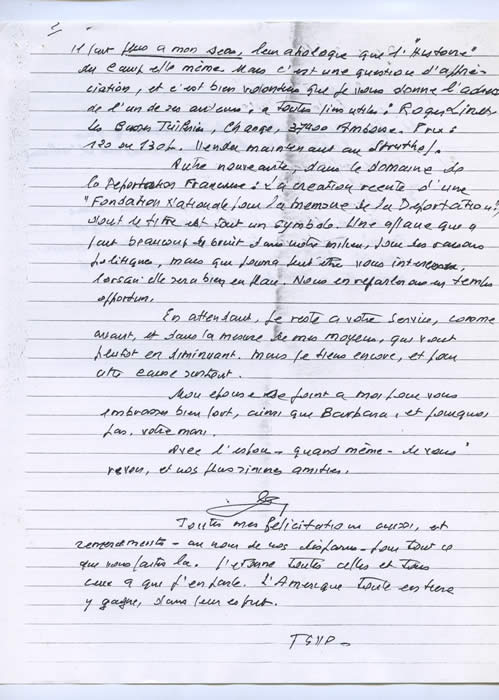 1
il faut plus à mon sens, 
du camp elle même. Mais c'est une question d'appré-
ciation, et c'est bien volontiers que je vous donne l'adresse
de l'un de ses auteurs, à toutes fins utiles : Roger Linet
les Basses            , Chargé, 37400 Amboise. Prix :
120 ou 130 f. Vendu maintenant au Struthof.
Autre nouveauté, dans le domaine de
la Déportation Française : la création récente d'une
"Fondation Nationale pour la mémoire de la Déportation",
dont le titre est tout un symbole. Une affaire qui a
fait beaucoup de bruit dans notre milieu, pour des raisons
politiques, mais qui pourra peut être vous intéresser,
lorsqu'elle sera bien en place. Nous en reparlerons en temps
opportun.
En attendant, je reste à votre service, comme
avant, et dans la mesure de mes moyens, qui vont
plutôt en diminuant. Mais je tiens encore, et pour
cette cause surtout.
Mon épouse se joint à moi pour vous
embrasser bien fort, ainsi que Barbara, et pourquoi
pas, votre mari.
Avec l'espoir - quand même - de vous
revoir, et nos plus sincères amitiés.
Toutes mes félicitations aussi, et
remerciements - au nom de nos disparus - pour tout ce
que vous faites là. J'étonne toutes celles et tous
ceux à qui j'en parle. L'Amérique toute entière
y gagne, dans leur esprit.
TSVP -